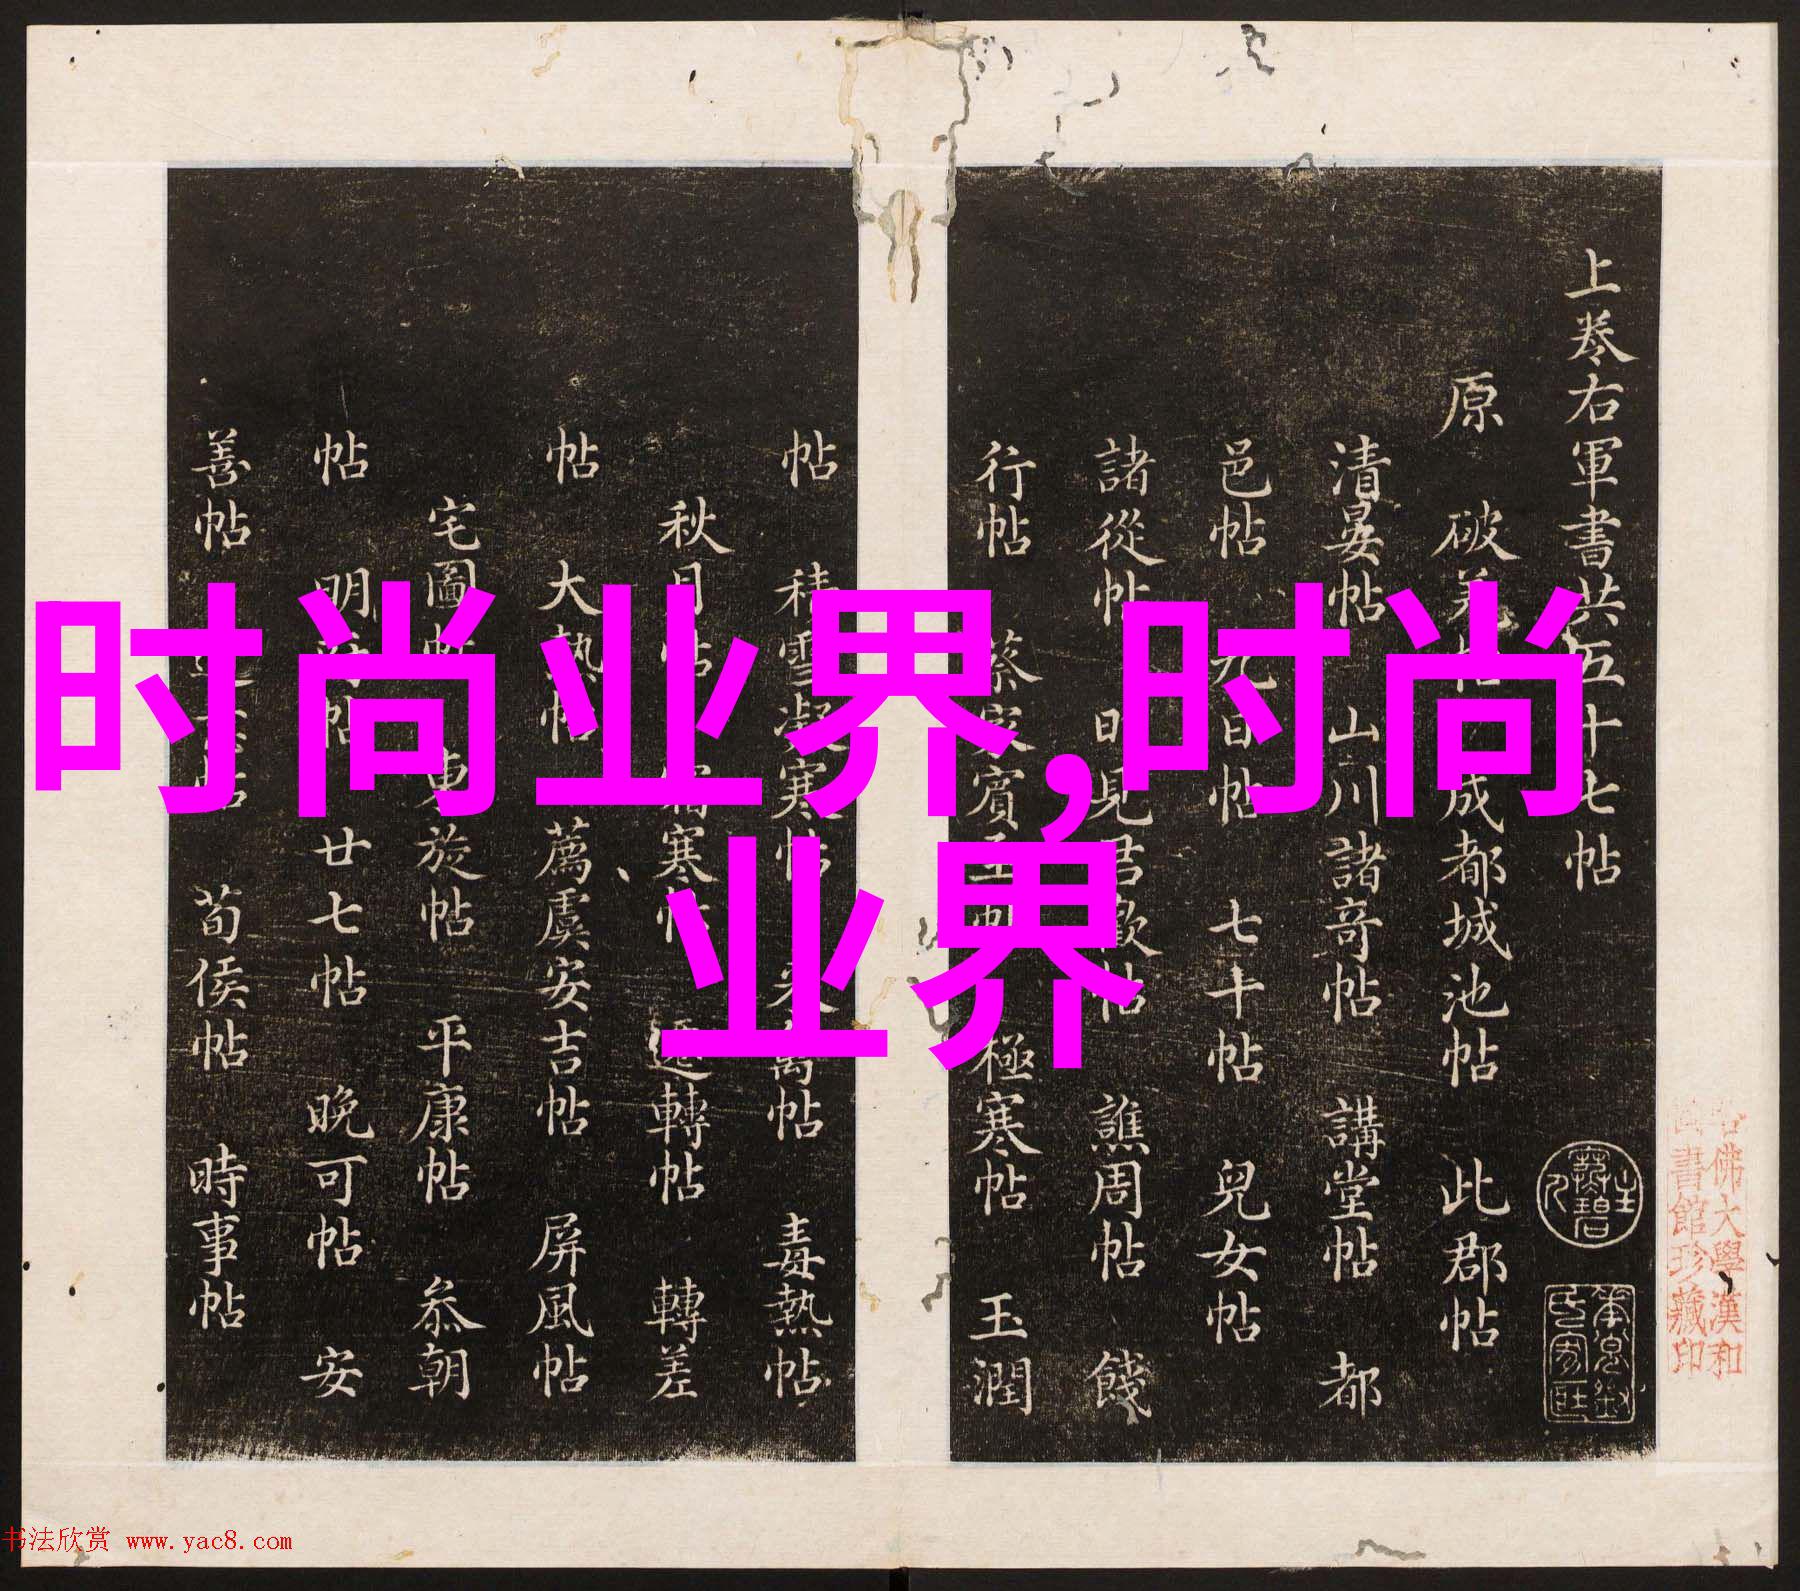 时尚业界,时尚
业界
上卷右軍書共五十七帖
原 破羌帖 成都城池帖 此郡帖
清晏帖 山川諸奇帖 講堂帖 都
邑帖 九日帖 七十帖 兒女帖
諸從帖 昨見君歡帖 譙周帖 餞
行帖 蔡家賓至帖 極寒帖 玉潤
帖 積雪凝寒帖 帖 毒熱帖
秋月帖 寒帖 轉帖 轉差
帖 大熱帖 薦虞安吉帖 屏風帖
宅圖帖 東旋帖 平康帖 叅朝
帖 明府帖 廿七帖 晚可帖 安
善帖 荀侯帖 時事帖
佛大學漢和
書館珍藏印
书法欣赏 www.yac8.com